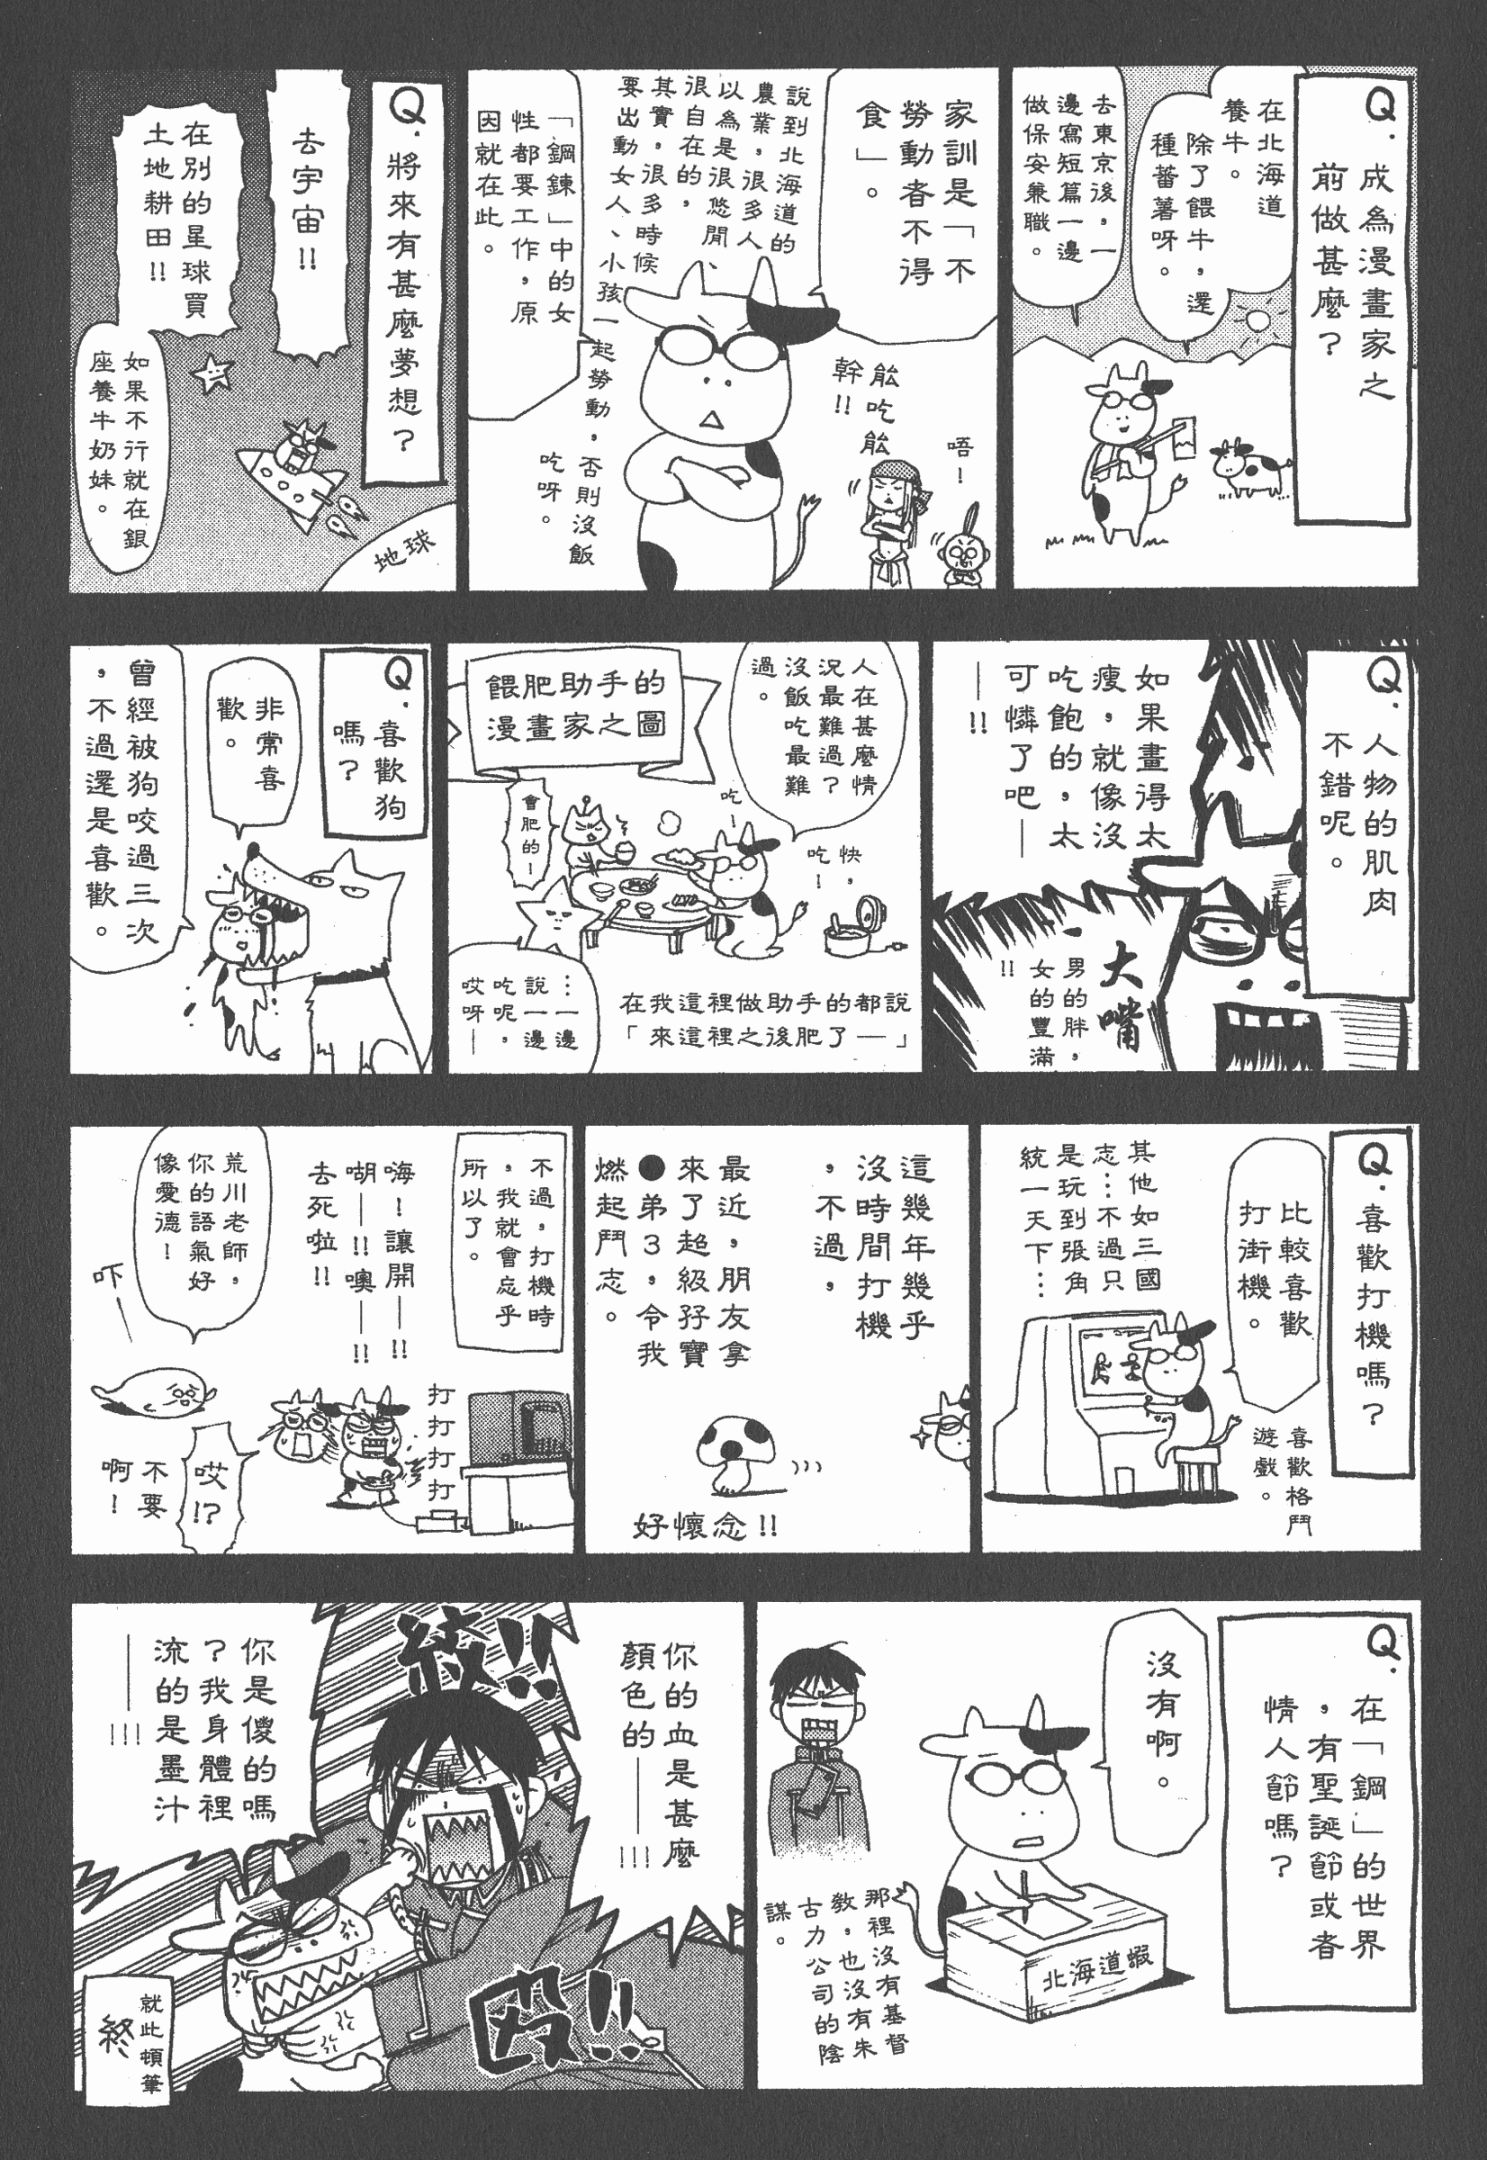 Q.成為漫畫家之
前做甚麼？
在北海道
養牛。
除了餵牛，還
種蕃薯呀。
去東京後，一
邊寫短篇一邊
做保安兼職。
家訓是「不
勞動者不得
食」。
說到北海道的
農業，很多人
以為是很悠閒、
很自在的，
其實，很多時候
要出動女人、小孩一起勞動，否則沒飯
吃呀。
能吃能
幹!!
唔！
「鋼鍊」中的女
性都要工作，原
因就在此。
Q.將來有甚麼夢想？
去宇宙!!
在別的星球買
土地耕田!!
如果不行就在銀
座養牛奶妹。
地球
Q.人物的肌肉
不錯呢。
如果畫得太
瘦，就像沒
吃飽的，太
可憐了吧—
—!!
大嘴
男的胖，
女的豐滿
!!
人在甚麼情
況最難過？
沒飯吃最難
過。
餵肥助手的
漫畫家之圖
吃！
快，
吃！
會肥的！
在我這裡做助手的都說
「來這裡之後肥了—」
…一邊
說一邊
吃呢，
哎呀—
Q.喜歡狗
嗎？
非常喜
歡。
曾經被狗咬過三次
，不過還是喜歡。
Q.喜歡打機嗎？
比較喜歡
打街機。
喜歡格鬥
遊戲。
其他如三國
志…不過只
是玩到張角
統一天下…
這幾年幾乎
沒時間打機
，不過，
最近，朋友拿
來了超級孖寶
●弟3，令我
燃起鬥志。
好懷念!!
不過，打機時
，我就會忘乎
所以了。
嗨！讓開—!!
嗍—!!噢—!!
去死啦!!
打打打打
荒川老師，
你的語氣好
像愛德！
吓—
哎!?
不要
啊！
Q.在「鋼」的世界
，有聖誕節或者
情人節嗎？
沒有啊。
北海道蝦
那裡沒有基督
教，也沒有朱
古力公司的陰
謀。
你的血是甚麼
顏色的—!!!
毆!!
你是傻的嗎
？我身體裡
流的是墨汁
—!!!
就此頓筆
終